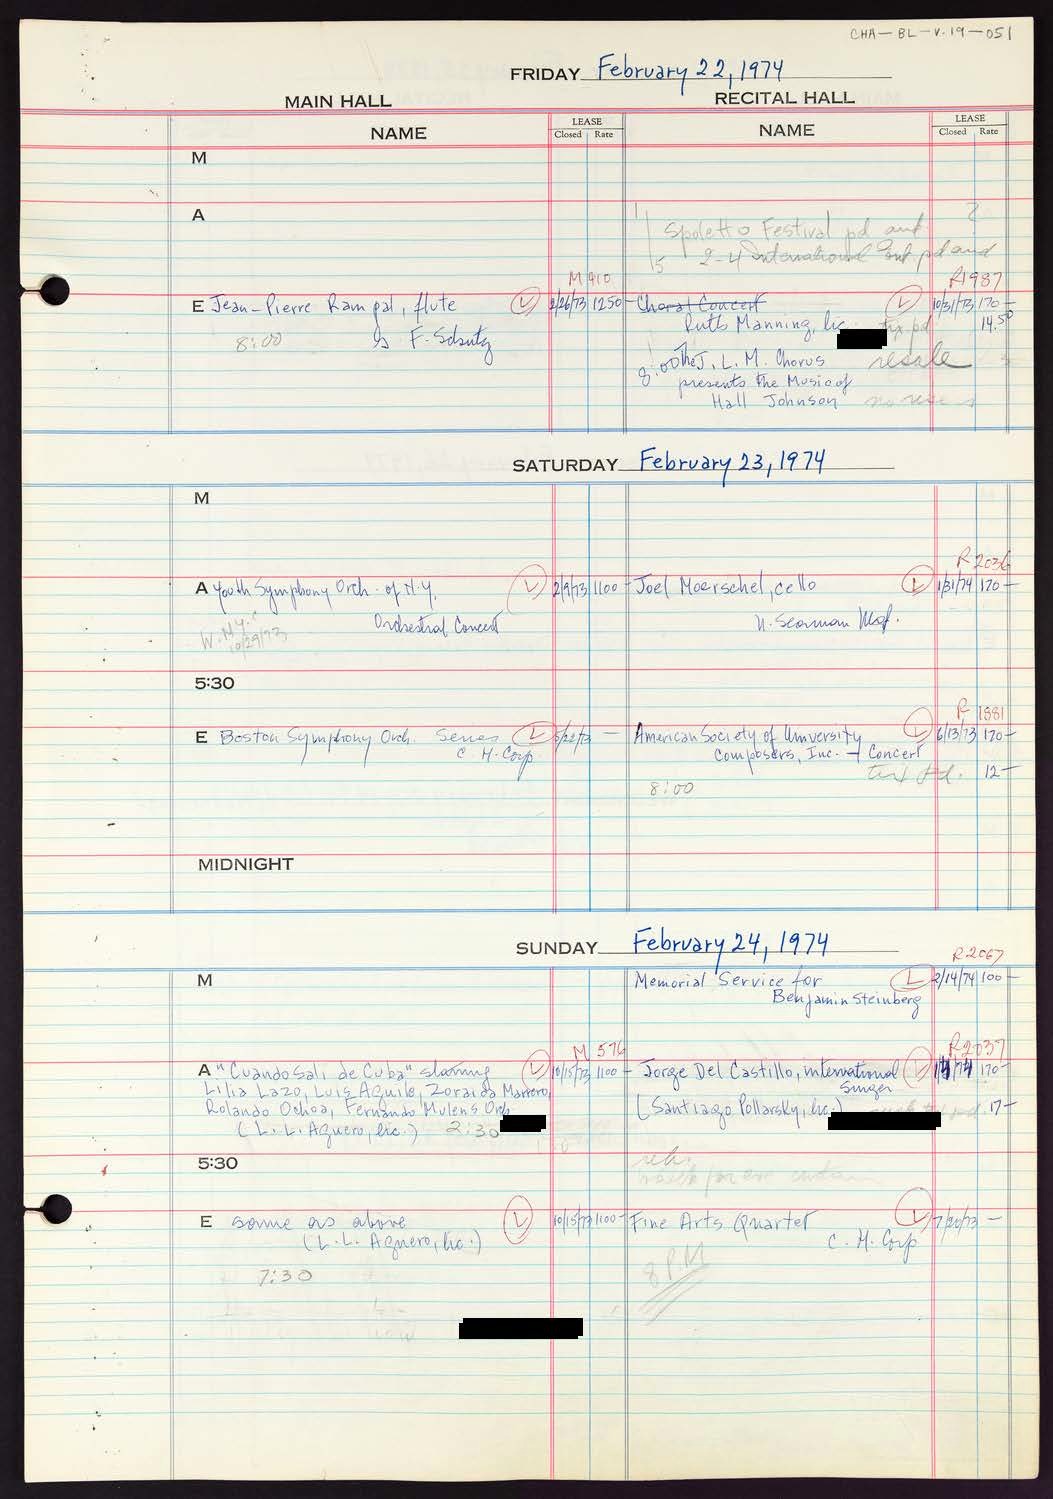 CHA-BL-V.19-051
FRIDAY February 22, 1974
MAIN HALL
RECITAL HALL
NAME
LEASE
Closed Rate
NAME
LEASE
Closed Rate
M
A
Spoletto Festival pd and
2-4 International Ent. pd and
M 910
R1987
E Jean-Pierre Rampal, flute
L 2/26/73 1250-
8:00
F. Schutz
Choral Concert
L 10/31/73 170-
Ruth Manning, lic. tix pd
14.50
8:00 The J. L. M. Chorus resale
presents the Music of
Hall Johnson
SATURDAY February 23, 1974
M
R 2036
A Youth Symphony Orch. of N.Y. L 2/9/73 1100-
Orchestral Concert
W.
10/29/73
Joel Moerschel, cello L 1/31/74 170-
N. Seaman Mgt.
5:30
R 1881
E Boston Symphony Orch. Series L 5/22/73 -
C. H. Corp
American Society of University L 6/13/73 170-
Composers, Inc. - Concert
12-
8:00
MIDNIGHT
SUNDAY February 24, 1974
R2067
M
Memorial Service for L 2/14/74 100-
Benjamin Steinberg
M 576
R2037
A "Cuando Sali de Cuba" starring L 10/15/73 1100-
Lilia Lazo, Luis Aguile, Zoraida Marrero,
Rolando Ochoa, Fernando Mulens Orch.
(L. L. Aguero, lic.) 2:30
Jorge Del Castillo, international L 170-
Singer
(Santiago Pollarsky, lic.) 17-
5:30
E same as above L 10/15/73 1100-
(L. L. Aguero, lic.)
7:30
Fine Arts Quartet L 7/20/73 -
C. H. Corp
8 P.M